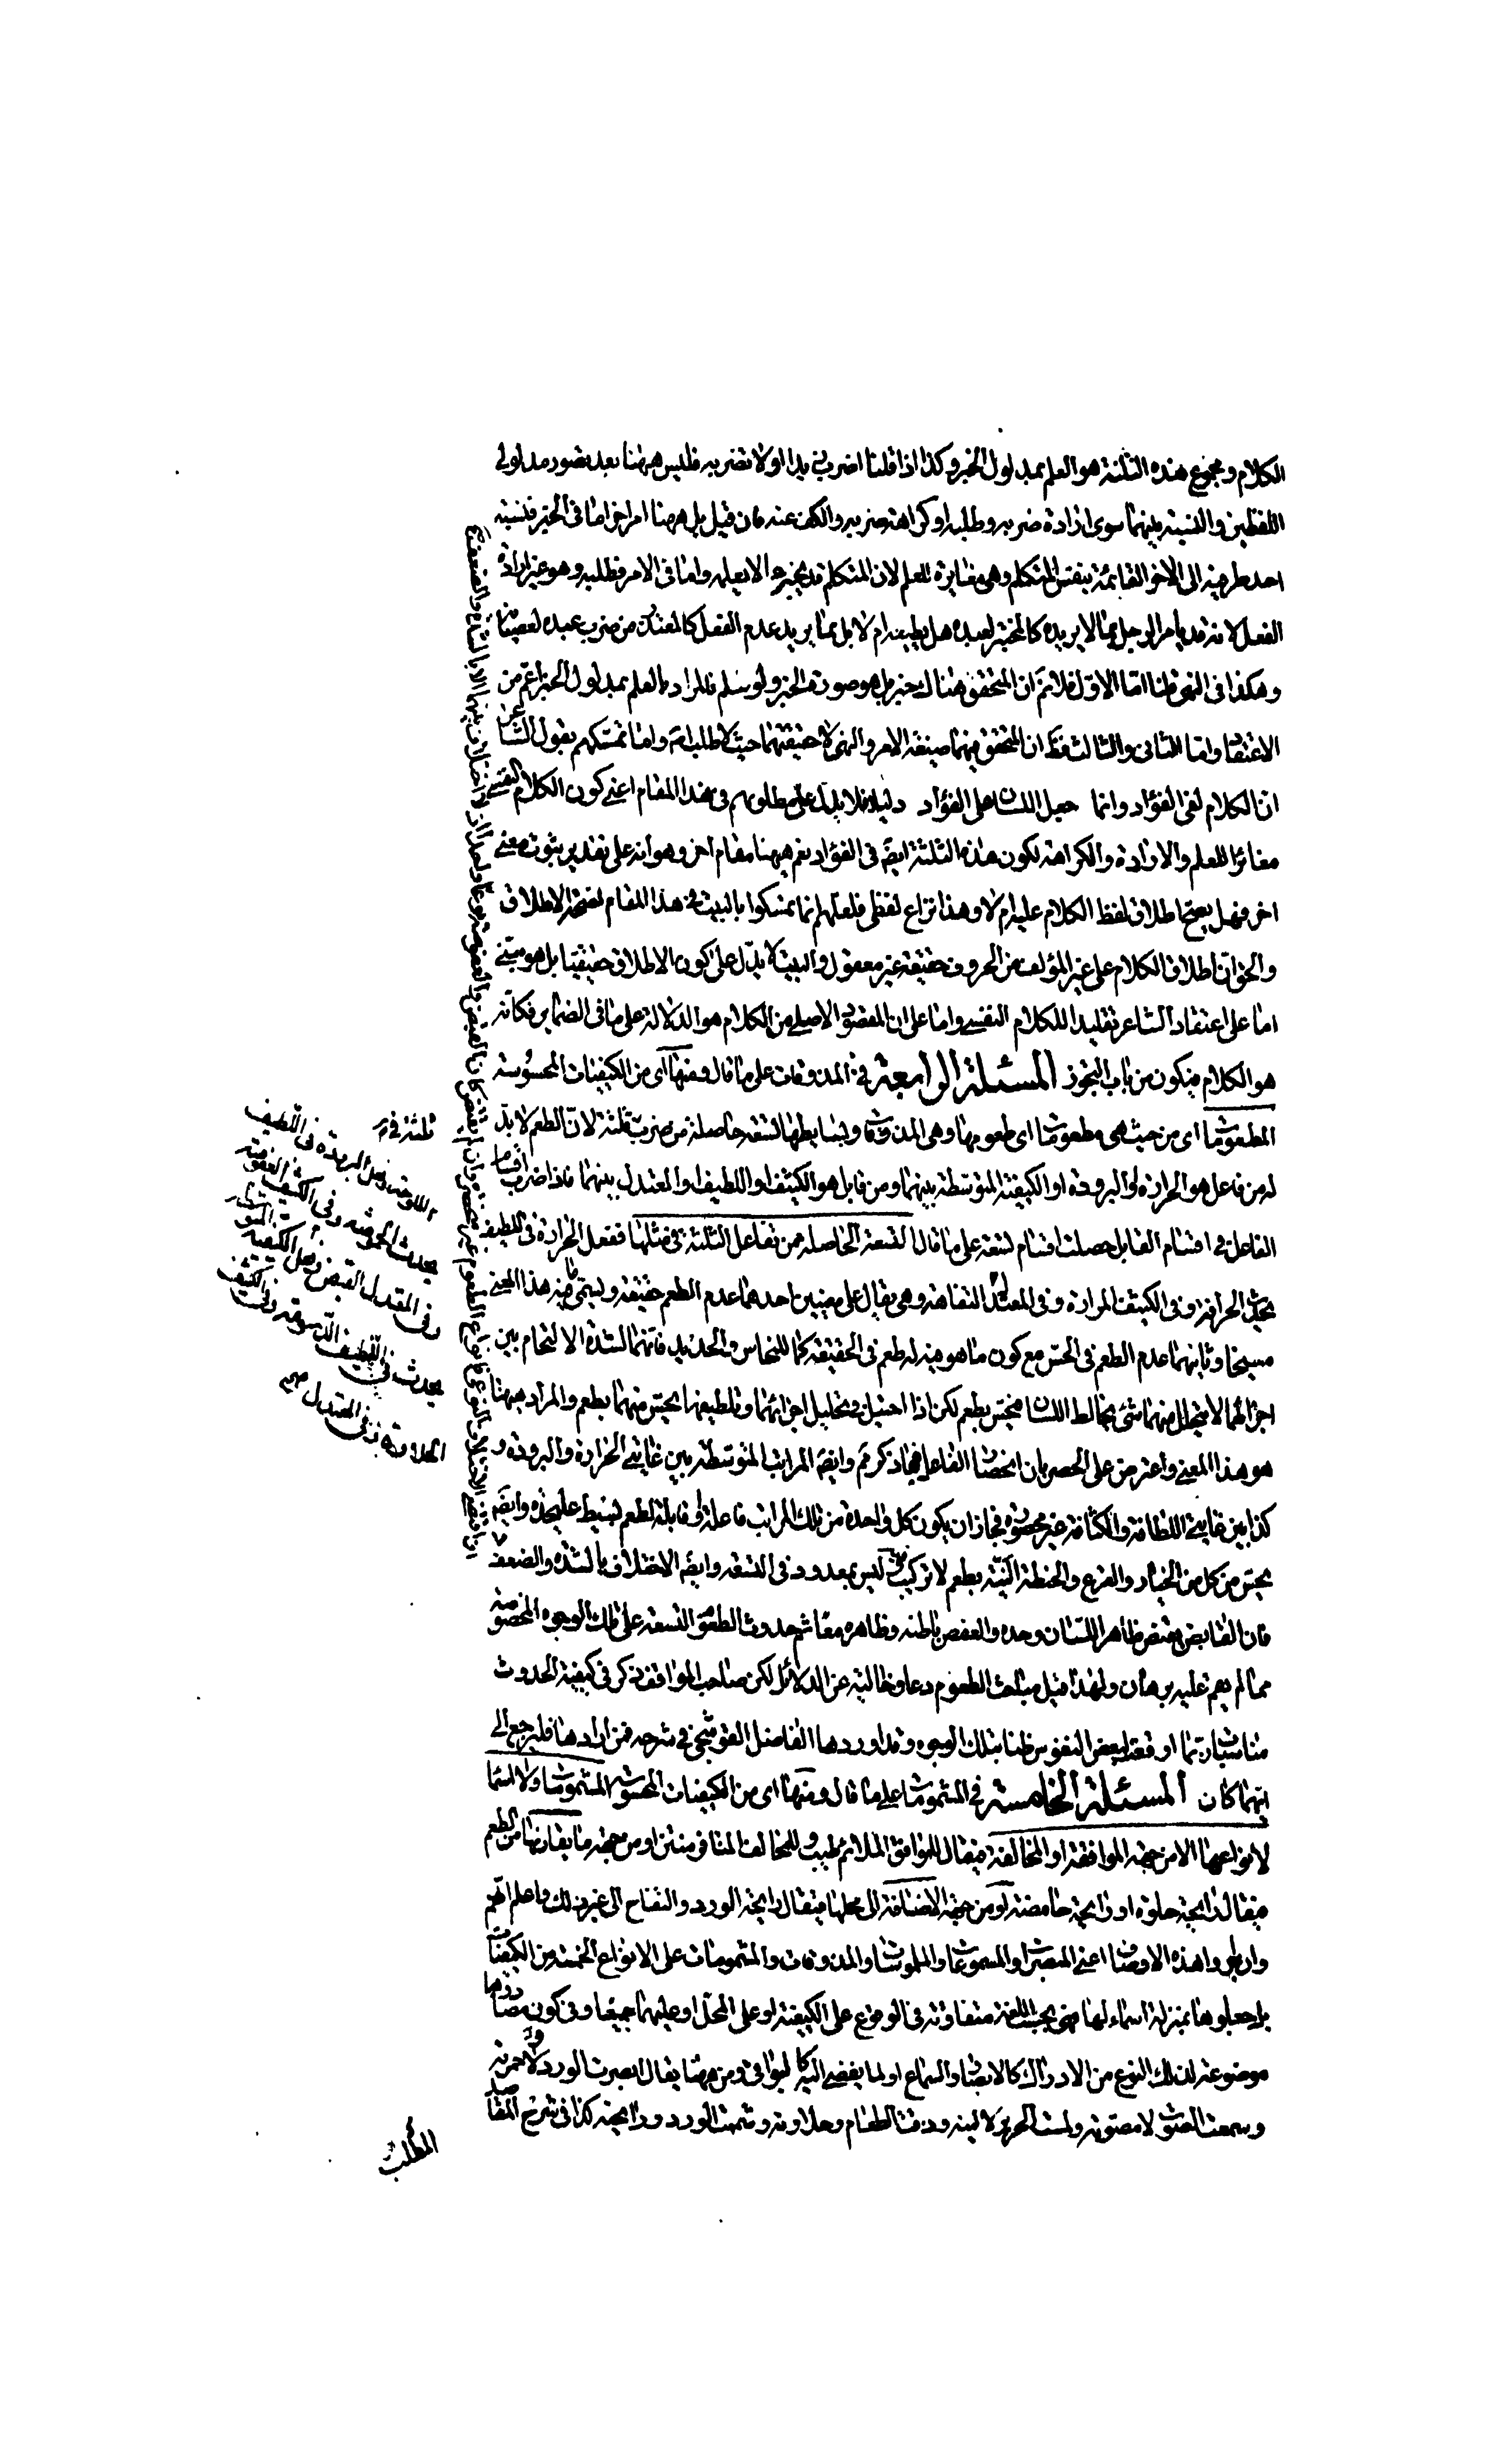 الكلام ومجموع هذه الثلثة هو العلم بمدلول الخبر وكذا اذا قلنا اضرب زيدا او لا تضربه فليس ههنا بعد تصور مدلولى
اللفظين والنسبة بينهما سوى ارادة ضربه وطلبه او كراهة ضربه والكف عنه فان قيل بل ههنا امر اخر اما فى الخبر فنسبة
احد طرفيه الى الاخر القائمة بنفس المتكلم وهى مغايرة للعلم لان المتكلم قد يخبر عما لا يعلمه واما فى الامر فطلبه وهو غير ارادة
الفعل لانه قد يامر الرجل بما لا يريده كالمختبر لعبده هل يطيعه ام لا بل بما يريد عدم الفعل كالمعتذر من ضرب عبده لعصيانه
وهكذا فى النهى قلنا اما الاول فلانم ان المتحقق هناك خبر بل هو صورة الخبر ولو سلم فالمراد بالعلم بمدلول الخبر اعم من
الاعتقاد واما الثانى والثالث فنقول ان المتحقق فيهما صيغة الامر والنهى لا حقيقتهما حيث لا طلب ثمه واما تمسكهم بقول الشاعر
ان الكلام لفى الفؤاد وانما جعل اللسان على الفؤاد دليلا فلا يدل على مطلوبهم فى هذا المقام اعنى كون الكلام النفسى
مغائرا للعلم والارادة والكراهة لكون هذه الثلثة ايضا فى الفؤاد نعم ههنا مقام اخر وهو انه على تقدير ثبوت معنى
اخر فهل يصح اطلاق لفظ الكلام عليه ام لا وهذا نزاع لفظى فلعلهم انما تمسكوا بالبيت فى هذا المقام لصحة الاطلاق
والحق ان اطلاق الكلام على غير المؤلف من الحروف حقيقة غير معقول والبيت لا يدل على كون الاطلاق حقيقيا بل هو مبنى
اما على اعتقاد الشاعر تقليدا للكلام النفسى واما على ان المقصود الاصلى من الكلام هو الدلالة على ما فى الضماير فكانه
هو الكلام فيكون من باب التجوز المسئلة الرابعة فى المذوقات على ما قال ومنها اى من الكيفيات المحسوسة
المطعومات اى من حيث هى مطعومات اى طعومها وهى المذوقات وبسايطها تسعة حاصلة من ضرب ثلثة لان الطعم لا بد
له من فاعل هو الحرارة او البرودة او الكيفية المتوسطة بينهما ومن قابل هو الكثيف او اللطيف او المعتدل بينهما فاذا ضرب اقسام
الفاعل فى اقسام القابل حصلت اقسام تسعة على ما قال التسعة الحاصلة من تفاعل الثلثة فى مثلها ففعل الحرارة فى اللطيف
يحدث الحرافة وفى الكثيف المرارة وفى المعتدل التفاهة وهى يقال على معنيين احدهما عدم الطعم حقيقة ويسمى ما فيه هذا المعنى
مسيخا وثانيهما عدم الطعم فى الحس مع كون ما هو فيه له طعم فى الحقيقة كما للنحاس والحديد فانهما لشدة الالتحام بين
اجزائهما لا يتحلل منهما شئ يخالط اللسان فيحس بطعم لكن اذا احتيل فى تحليل اجزائهما وتلطيفها يحس منهما بطعم والمراد ههنا
هو هذا المعنى واعترض على الحصر بان انحصار الفاعل فيما ذكر مم وايضا المراتب المتوسطة بين غايتى الحرارة والبرودة و
كذا بين غايتى اللطافة والكثافة غير محصورة فجاز ان يكون كل واحدة من تلك المراتب فاعلة او قابلة لطعم بسيط عليحدة وايضا
يحس من كل من الخيار والقرع والحنطة النية بطعم لا تركيب فيه ليس بمعدود فى التسعة وايضا الاختلاف بالشدة والضعف
فان القابض يقبض ظاهر اللسان وحده والعفص باطنه وظاهره معا ثم حدوث الطعوم التسعة على تلك الوجوه المخصوصة
مما لم يقم عليه برهان ولهذا قيل مباحث الطعوم دعاو خالية عن الدلائل لكن صاحب المواقف ذكر فى كيفية الحدوث
مناسبات ربما اوقعت لبعض النفوس ظنا بتلك الوجوه وقد اوردها الفاضل القوشجى فى شرحه فمن ارادها فليرجع الى
ايهما كان المسئلة الخامسة فى المشمومات على ما قال ومنها اى من الكيفيات المحسوسة المشمومات ولا اسماء
لانواعها الا من جهة الموافقة او المخالفة فيقال للموافق الملائم طيب وللمخالف المنافر منتن او من جهة ما يقارنها من الطعم
فيقال رايحة حلوة او رايحة حامضة او من جهة الاضافة الى محلها فيقال رايحة الورد والتفاح الى غير ذلك واعلم انهم
وان اطلقوا هذه الاوصاف اعنى المبصرات او المسموعات والملموسات والمذوقات والمشمومات على الانواع الخمسة من الكيفيات
بل جعلوها بمنزلة اسماء لها فهى بحسب اللغة متفاوتة فى الوضع على الكيفية او على المحل او عليهما جميعا وفى كون مصادرها
موضوعة لذلك النوع من الادراك كالابصار والسماع او لما يفضى اليه كالبواقى ومن ههنا يقال ابصرت الورد وحمرته
وسمعت الصوت لا مصوته ولمست الحرير لا لينه وذقت الطعام وحلاوته وشممت الورد ورايحته كذا فى شرح المقاصد
المطلب
ثلثة فى ثلثة
يحدث الحموضة وفى الكثيف العفوصة
وفى المعتدل القبض وفعل الكيفية المتوسطة
يحدث فى اللطيف الدسومة وفى الكثيف
الحلاوة وفى المعتدل